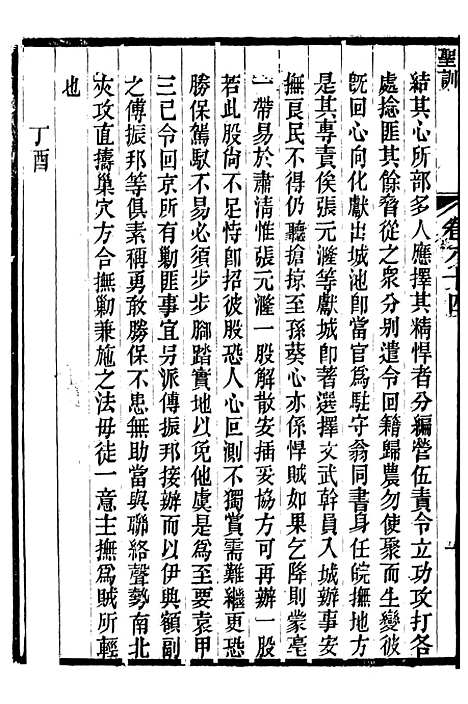 聖訓
卷六十四
結其心所部多人應擇其精悍者分編營伍責令立功攻打各
處捻匪其餘脅從之衆分别遣令回籍歸農勿使聚而生變彼
旣回心向化獻出城池卽當官為駐守翁同書身任皖撫地方
是其專責俟張元漋等獻城卽著選擇文武幹員入城辦事安
撫良民不得仍聽搶掠至孫葵心亦係悍賊如果乞降則蒙亳
一帶易於肅清惟張元漋一股解散安插妥協方可再辦一股
若此股尙不足恃卽招彼股恐人心回測不獨賞需難繼更恐
勝保駕馭不易必須步步腳踏實地以免他虞是為至要袁甲
三已令回京所有勦匪事宜另派傅振邦接辦而以伊興額副
之傅振邦等俱素稱勇敢勝保不患無助當與聯絡聲勢南北
夾攻直擣巢穴方合撫勦兼施之法毋徒一意主撫為賊所輕
也
丁酉